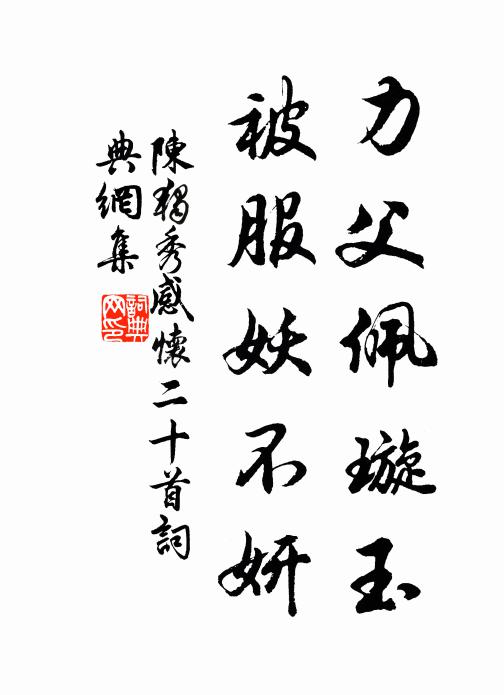 力父佩璇玉
被服妖不妍
陳獨秀感懷二十首詞
典網集
詞典
网印